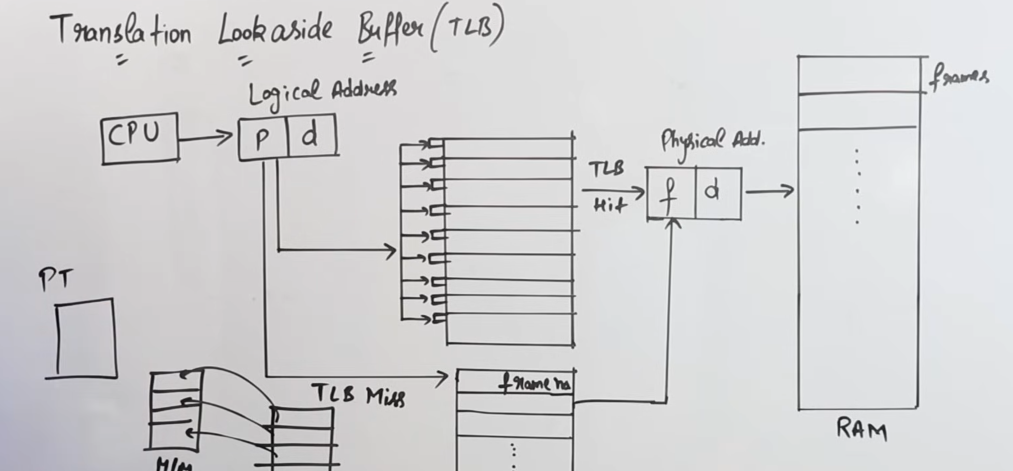 Translation Lookaside Buffer (TLB)
Logical Address
CPU
p d
TLB
Hit
Physical Add.
f d
frames
RAM
PT
TLB Miss
frame no
M/M